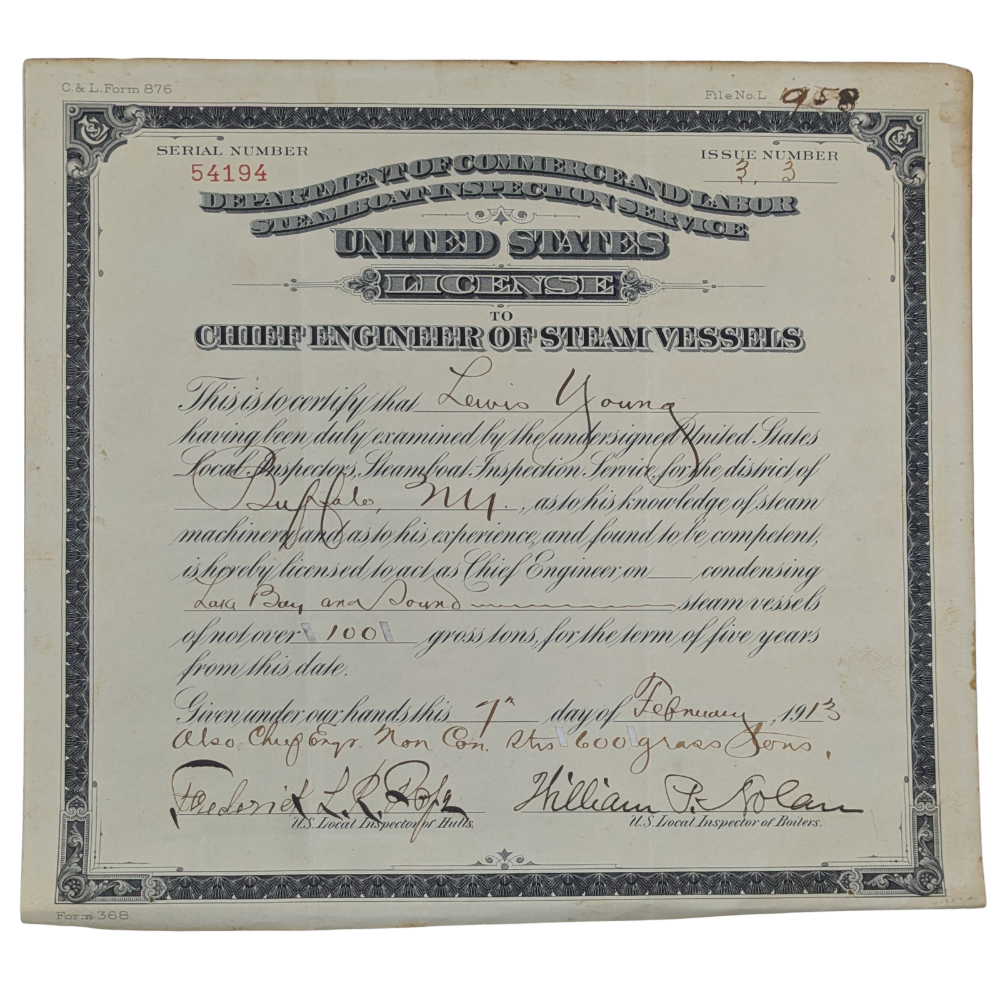 C. & L. Form 876
File No. L 958
SERIAL NUMBER
54194
ISSUE NUMBER
3. 3
DEPARTMENT OF COMMERCE AND LABOR
STEAMBOAT-INSPECTION SERVICE
UNITED STATES
LICENSE
TO
CHIEF ENGINEER OF STEAM VESSELS
This is to certify that Lewis Young
having been duly examined by the undersigned United States
Local Inspectors, Steamboat-Inspection Service, for the district of
Buffalo, N.Y., as to his knowledge of steam
machinery, and as to his experience, and found to be competent,
is hereby licensed to act as Chief Engineer on condensing
Bay and Sound steam vessels
of not over 100 gross tons, for the term of five years
from this date.
Given under our hands this 7th day of February, 1913
Also Chief Engr. Non Con. Strs 600 gross Tons.
Frederick L. R.
William P. Nolan
U.S. Local Inspector of Hulls.
U.S. Local Inspector of Boilers.
Form 368